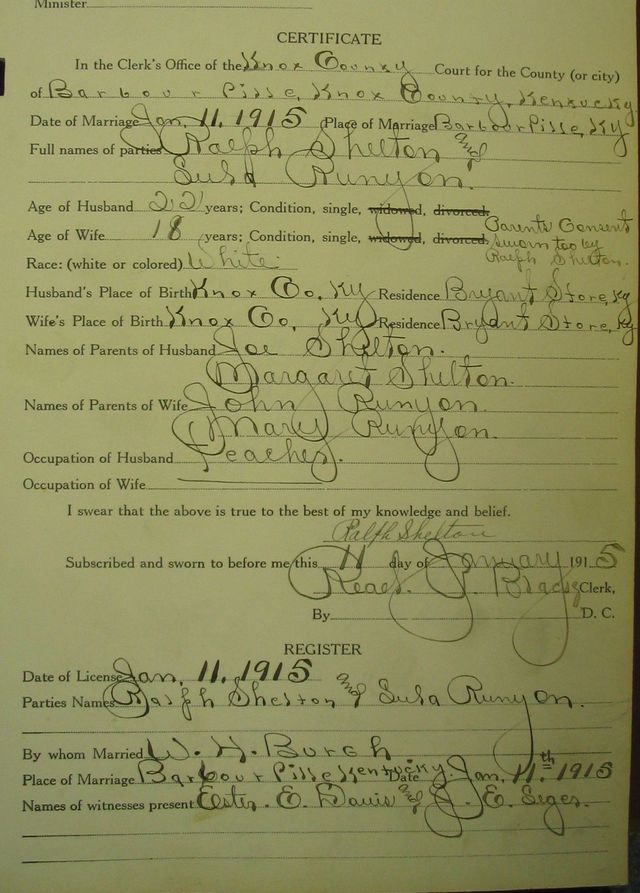 Minister
CERTIFICATE
In the Clerk's Office of the Knox County Court for the County (or city)
of Barbourville, Knox County, Kentucky
Date of Marriage Jan, 11, 1915 Place of Marriage Barbourville, Ky
Full names of parties Ralph Shelton and
Susa Runyon.
Age of Husband 22 years; Condition, single, widowed, divorced.
Parents Consent
Age of Wife 18 years; Condition, single, widowed, divorced.
sworn too by
Ralph Shelton.
Race: (white or colored) White
Husband's Place of Birth Knox Co, Ky Residence Bryant Store, Ky
Wife's Place of Birth Knox Co, Ky Residence Bryant Store, Ky
Names of Parents of Husband Joe Shelton.
Margaret Shelton.
Names of Parents of Wife John Runyon.
Mary Runyon.
Occupation of Husband Teacher.
Occupation of Wife
I swear that the above is true to the best of my knowledge and belief.
Ralph Shelton
Subscribed and sworn to before me this 11 day of January 1915
Read. P. Black Clerk,
By D. C.
REGISTER
Date of License Jan, 11, 1915
Parties Names Ralph Shelton and Susa Runyon.
By whom Married W. H. Burch
Place of Marriage Barbourville Kentucky. Date Jan, 11th 1915
Names of witnesses present Ester. E. Davis and J. E. Seger.